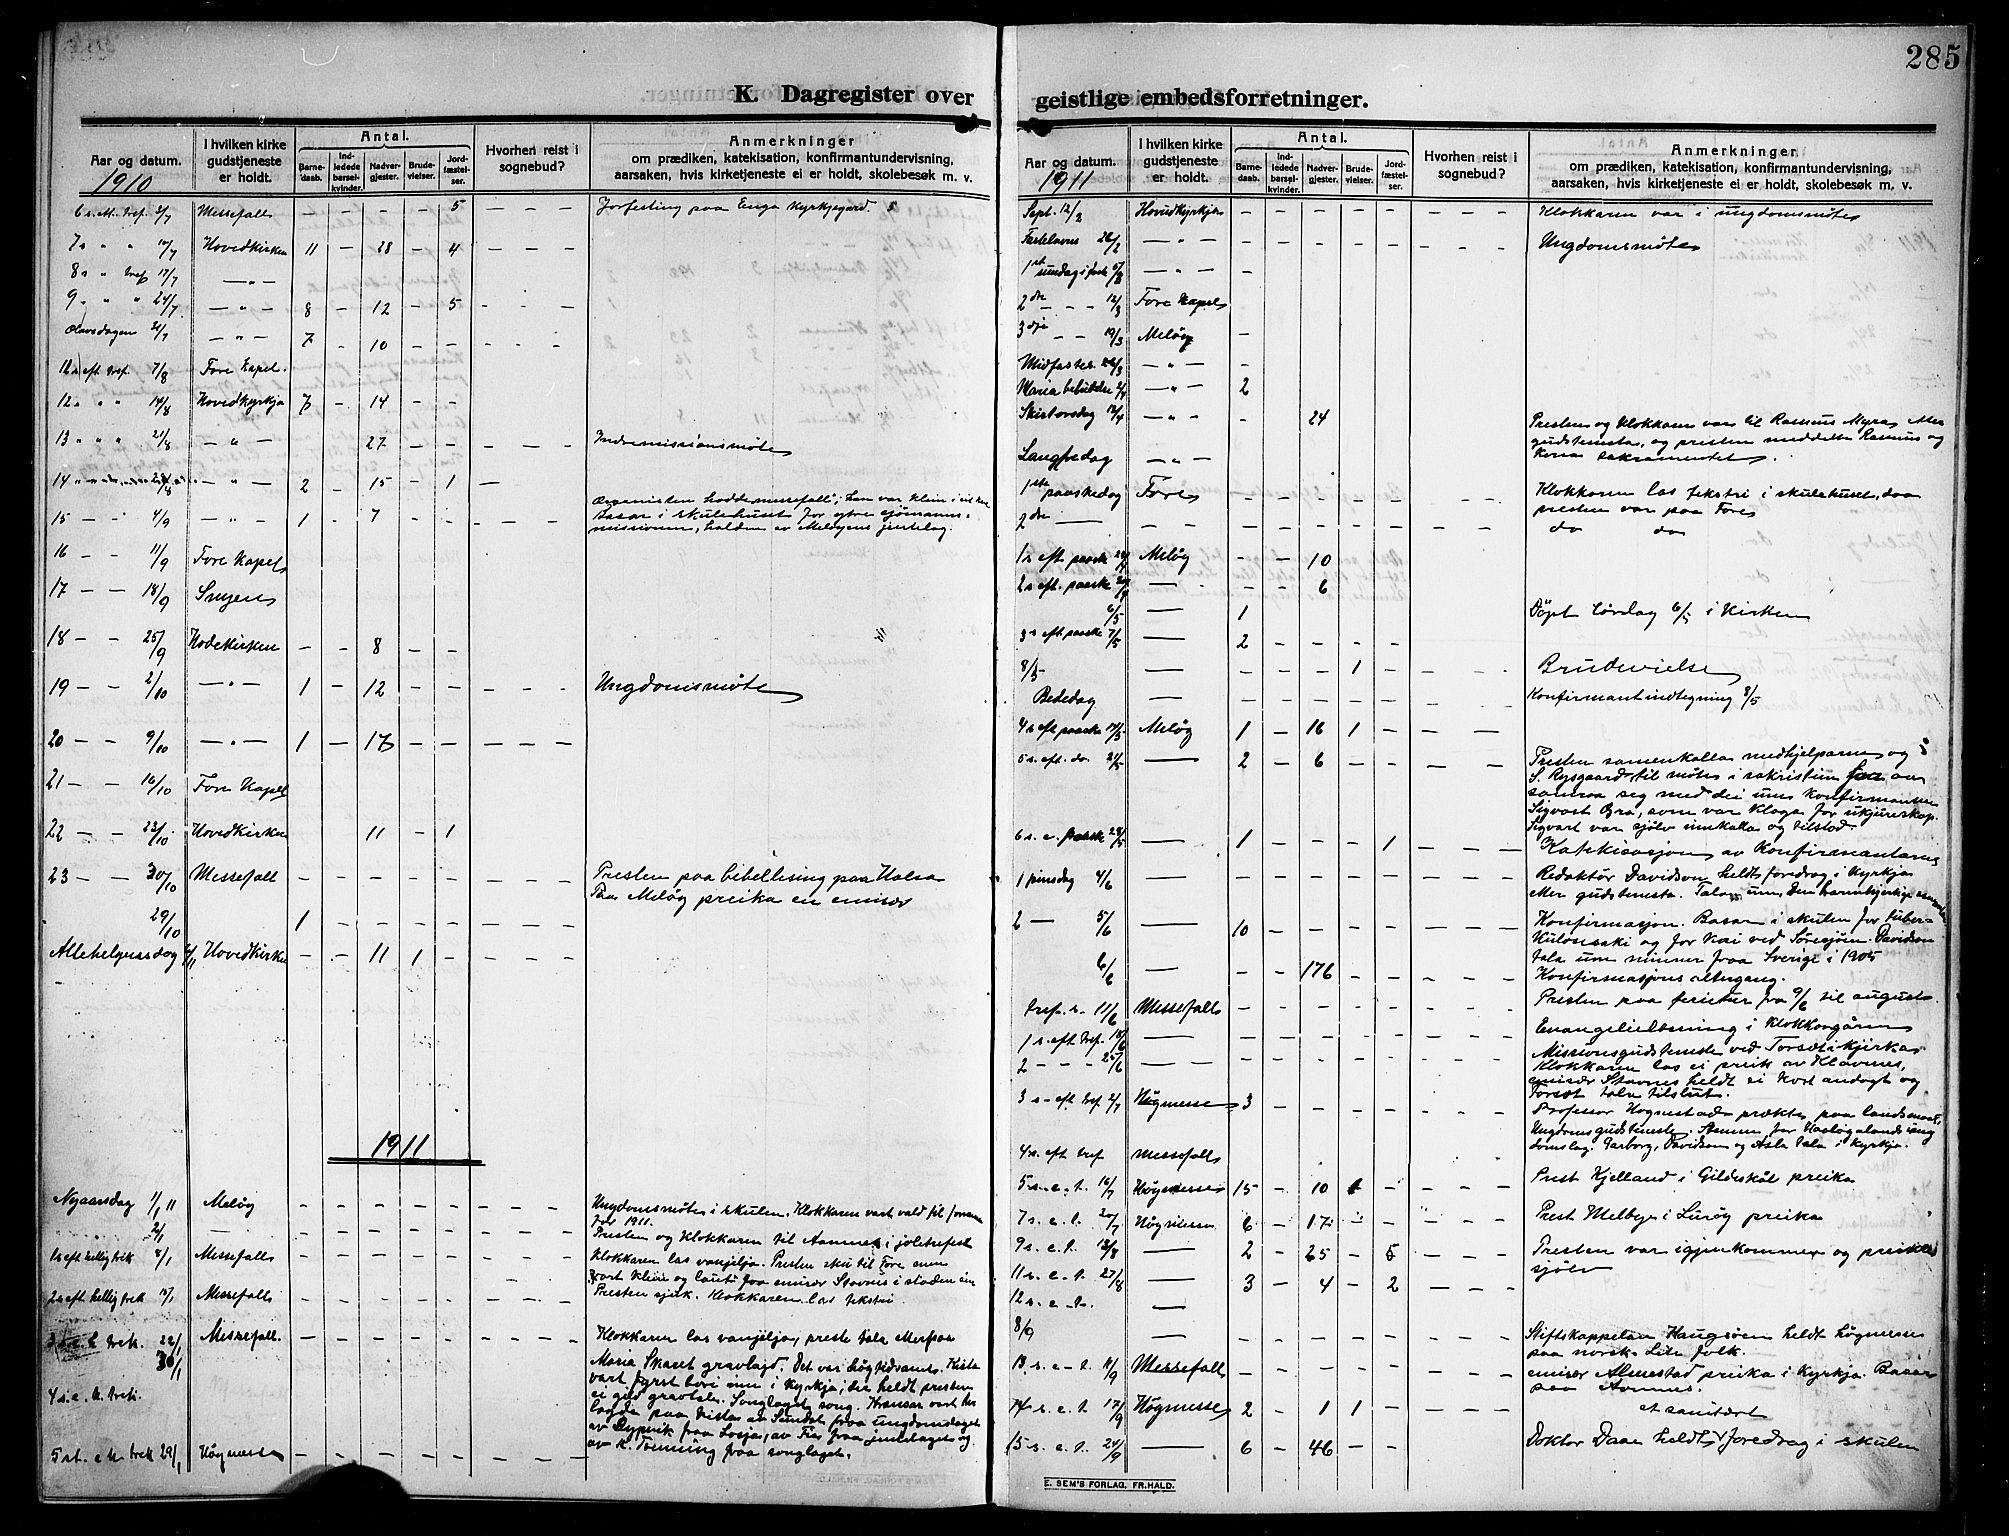 285
K. Dagregister over geistlige embedsforretninger.
Aar og datum.
1910
I hvilken kirke gudstjeneste er holdt.
Antal.
Barnedaab.
Indledede barselkvinder.
Nadvergjester.
Brudevielser.
Jordfæstelser.
Hvorhen reist i sognebud?
Anmerkninger
om prædiken, katekisation, konfirmantundervisning,
aarsaken, hvis kirketjeneste ei er holdt, skolebesøk m. v.
6 s. 3/7 Messefall – – – – 5 Jorfesting paa Enga Kyrkjegard. 5
7 s " " 10/7 Hovedkirken 11 – 28 – 4
8 s " tref 17/7 – " –
9 " " " 24/7 – " – 8 – 12 – 5
Olavsdagen – " – 7 – 10 – –
12 s eft tref. 7/8 Fore Kapel.
12 " " " 14/8 Hovedkyrkja 7 – 14 – –
13 " " " 21/8 – " – – – 27 – – Indremissionsmøte
14 28/8 – " – 2 – 15 – 1 –
Organisten hadde messefall;
15 – " 4/9 – " – 1 – 7 – – basar i skulehuset for ytre sjömanns-
missionen, halden av Meløyens jentelag.
16 – – 11/9 Fore Kapel
17 – – 18/9
18 – – 25/9 Hovekirken – – 8 – –
19 – – 2/10 – " – 1 – 12 – – Ungdomsmøte
20 – – 9/10 – " – 1 – 17 – –
21 – – 16/10 Fore Kapel
22 – – 23/10 Hovedkirken 11 – 1
23 – – 30/10 Messefall – – – – – Presten paa bibellesing paa Halsa
Paa Meløy preika en emisær
29/10 1 – – – –
Allehelgensdag 6/11 Hovedkirken – – 11 1 –
1911
Nyaarsdag 1/1 11 Meløy – – – – – Ungdomsmøte i skulen. Klokkaren vart vald til formann
for 1911.
2/1 — – – – – – Presten og Klokkaren til Aamnes i joletrefest
1s eft hellig trek 8/1 Messefall – – – – – Klokkaren las vanjelja. Presten sku til Fore men
vart
2s eft hellig trek 15/1 Messefall – – – – – Presten sjuk. Klokkaren las tekstri
trek. 22/1 Messefall. – – – – – Klokkaren las vanjelja, preste tala
30/1 Maria Skaret gravlagd. Det var høgtidsamt. Kista
vart fyrst bori inn i Kyrkja; der heldt presten
4 s. e. h. trek. ei god gravtale. Songlaget song. Kransar vart
lagde paa kista av Sundet fraa ungdomslaget
av fraa Losja, av fraa jentelaget og
5 st. e h. trek 29/1 Høgmesse – – – – – av K. Tverning fraa songlaget.
Aar og datum.
1911
I hvilken kirke gudstjeneste er holdt.
Antal.
Barnedaab.
Indledede barselkvinder.
Nadvergjester.
Brudevielser.
Jordfæstelser.
Hvorhen reist i sognebud?
Anmerkninger.
om prædiken, katekisation, konfirmantundervisning,
aarsaken, hvis kirketjeneste ei er holdt, skolebesøk m. v.
Sept. 12/2 Hovudkyrkja – – – – – Klokkaren var i ungdomsmøte
Fastelavns 26/2 – " – – – – – – Ungdomsmøte
1st sundag i faste 5/3 – " – –
2 dre – – 12/3 Fore Kapel –
3 dje – – 19/3 Meløy –
Midfaste 26/3 – " – –
Maria bebudelse – " – 2
Skirtorsdag 13/4 – " – 24 Presten og Klokkaren var til Rasmus Myra, etter
gudstenesta, og presten meddelte Rasmus og
Langfredag – " – sakramentet.
1ste paaskedag Fore – – – – – Klokkaren las tekstri i skulehuset, daa
presten var paa Fore
2 dre — – – – – – – do do
1s eft. paaske Meløy – – 10
2 s eft. paaske — – – 6
6/5 — 1 Döpt Lördag 6/5 i Kirken
3 s eft paaske 7/5 — 2 – – – –
8/5 — – – – 1 – Brudevielse
Bededag — – – – – – Konfirmantindtegning 8/5
4 s eft paaske 14/5 Meløy 1 – 16 1 –
5 s. eft. do. 21/5 — 2 – 6 – – Presten samenkalla medhjelparne og
S. Rysgaard til møte i sakristiun for aa
samraa seg med dei um konfirmanten
Sigvart Øra, som var klaga for ukjureskap.
Sigvart var sjölv innkalla og tilstod.
6 s. e. paask 28/5 — 1 – – – 1 Katekisasjon av Konfirmantarne
1 pinsdag 4/6 — – – – – – Redaktör Davidson heldt foredrag i Kyrkja
etter gudstenesta. Tala um Den barmhjertige samaritan
2 — 5/6 — 10 – – – – Konfirmasjon. Basar i skulen for tuber-
kulosesaki og for Kai ved Søresjøen. Davidson
tala um minner fraa Sverige i 1905
6/6 — – – 176 – – Konfirmasjons altergang.
tref. s. 11/6 Messefall – – – – – Presten paa ferietur fra 9/6 til august.
1 s. eft tref. 18/6 — – – – – – Evangelielæsning i Klokkargåren
2 – – – 25/6 — – – – – – Missionsgudsteneste ved Torset i kjerka.
Klokkaren las ei preik av Klavnes,
emisær Stavnes heldt ei kort andagt og
Torset tala tilslut.
3 s – eft tref 2/7 Høgmesse 3 – – – – Professor Hognestad prækte paa landsmaal,
Ungdomsgudsteneste. Stemne for Haaløgalands ung
domslag. Garborg, Davidson og Asla tala i kyrkja.
4 s. eft tref Messefall
5 s. e. t. 16/7 Høgmesse 15 – 10 1 – Prest Kjelland i Gildeskål preika
7 s. e. t. Høgmesse 6 – 17 – – Prest Melbye i Lurøy preika
9 s. e. t. 13/8 — 2 – 25 – 5 Presten var igjenkommen og preika
sjölv
11 s. e. t. 27/8 — 3 – 4 – 2
12 s. e. t. —
8/9 — – – – – – Stiftskappelan Haugsøen heldt høgmesse
paa norsk. Lite folk.
13 s. e. t. Messefall – – – – – emisær Almestad preika i Kyrkja. Basar
paa Aamnes.
14 s. e. t. 17/9 Høgmesse 2 – 1 1 – et sanitært
15 s. e. t. 24/9 — 6 – 46 – – Doktor Daae heldt foredrag i skulen
E. SEM'S FORLAG, FR.HALD.